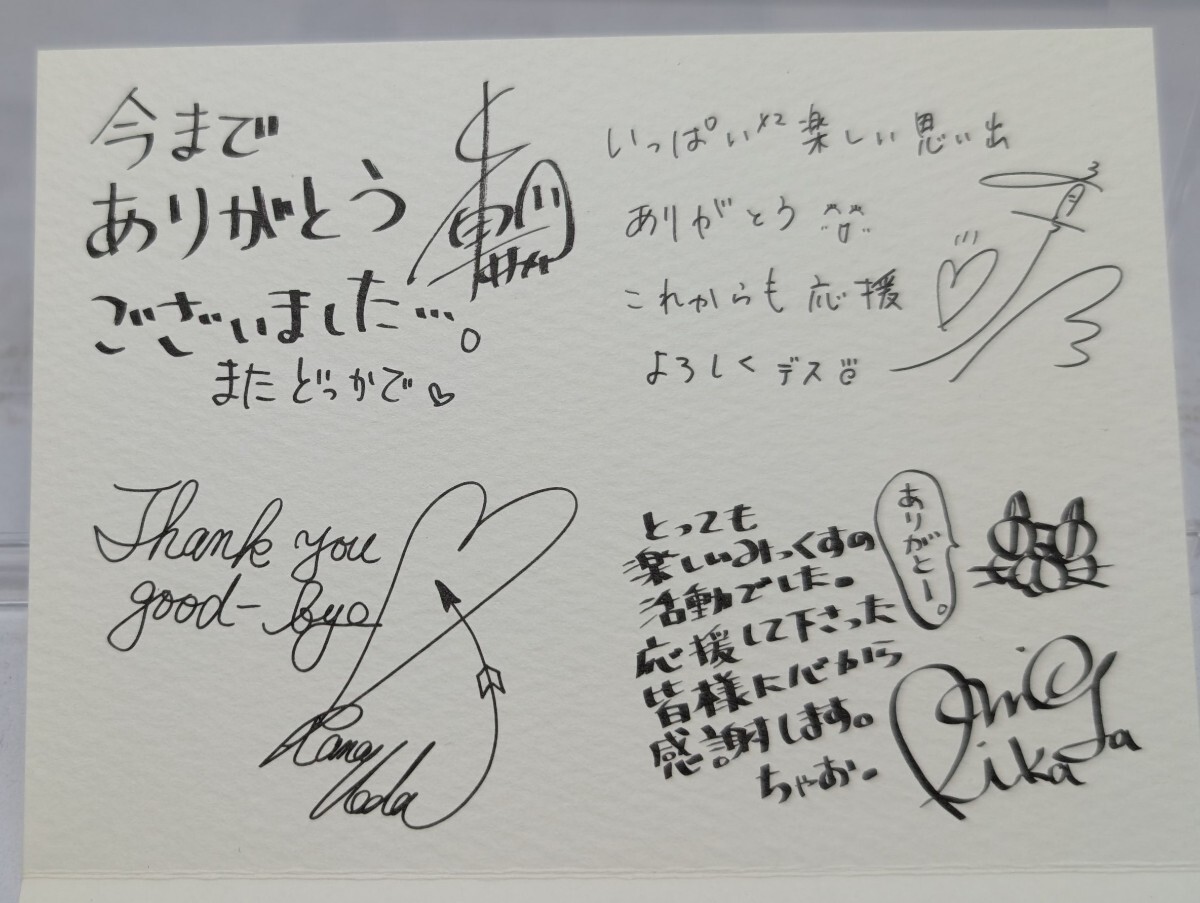 今まで
ありがとう
ございました…。
またどっかで♡
いっぱい×2楽しい思い出
ありがとう
これからも応援
よろしくデス
Thank you
good-bye
Kana
Ueda
とっても
楽しいみっくすの
活動でした。
応援して下さった
皆様に心から
感謝します。
ちゃお。
ありがとー。
Rika